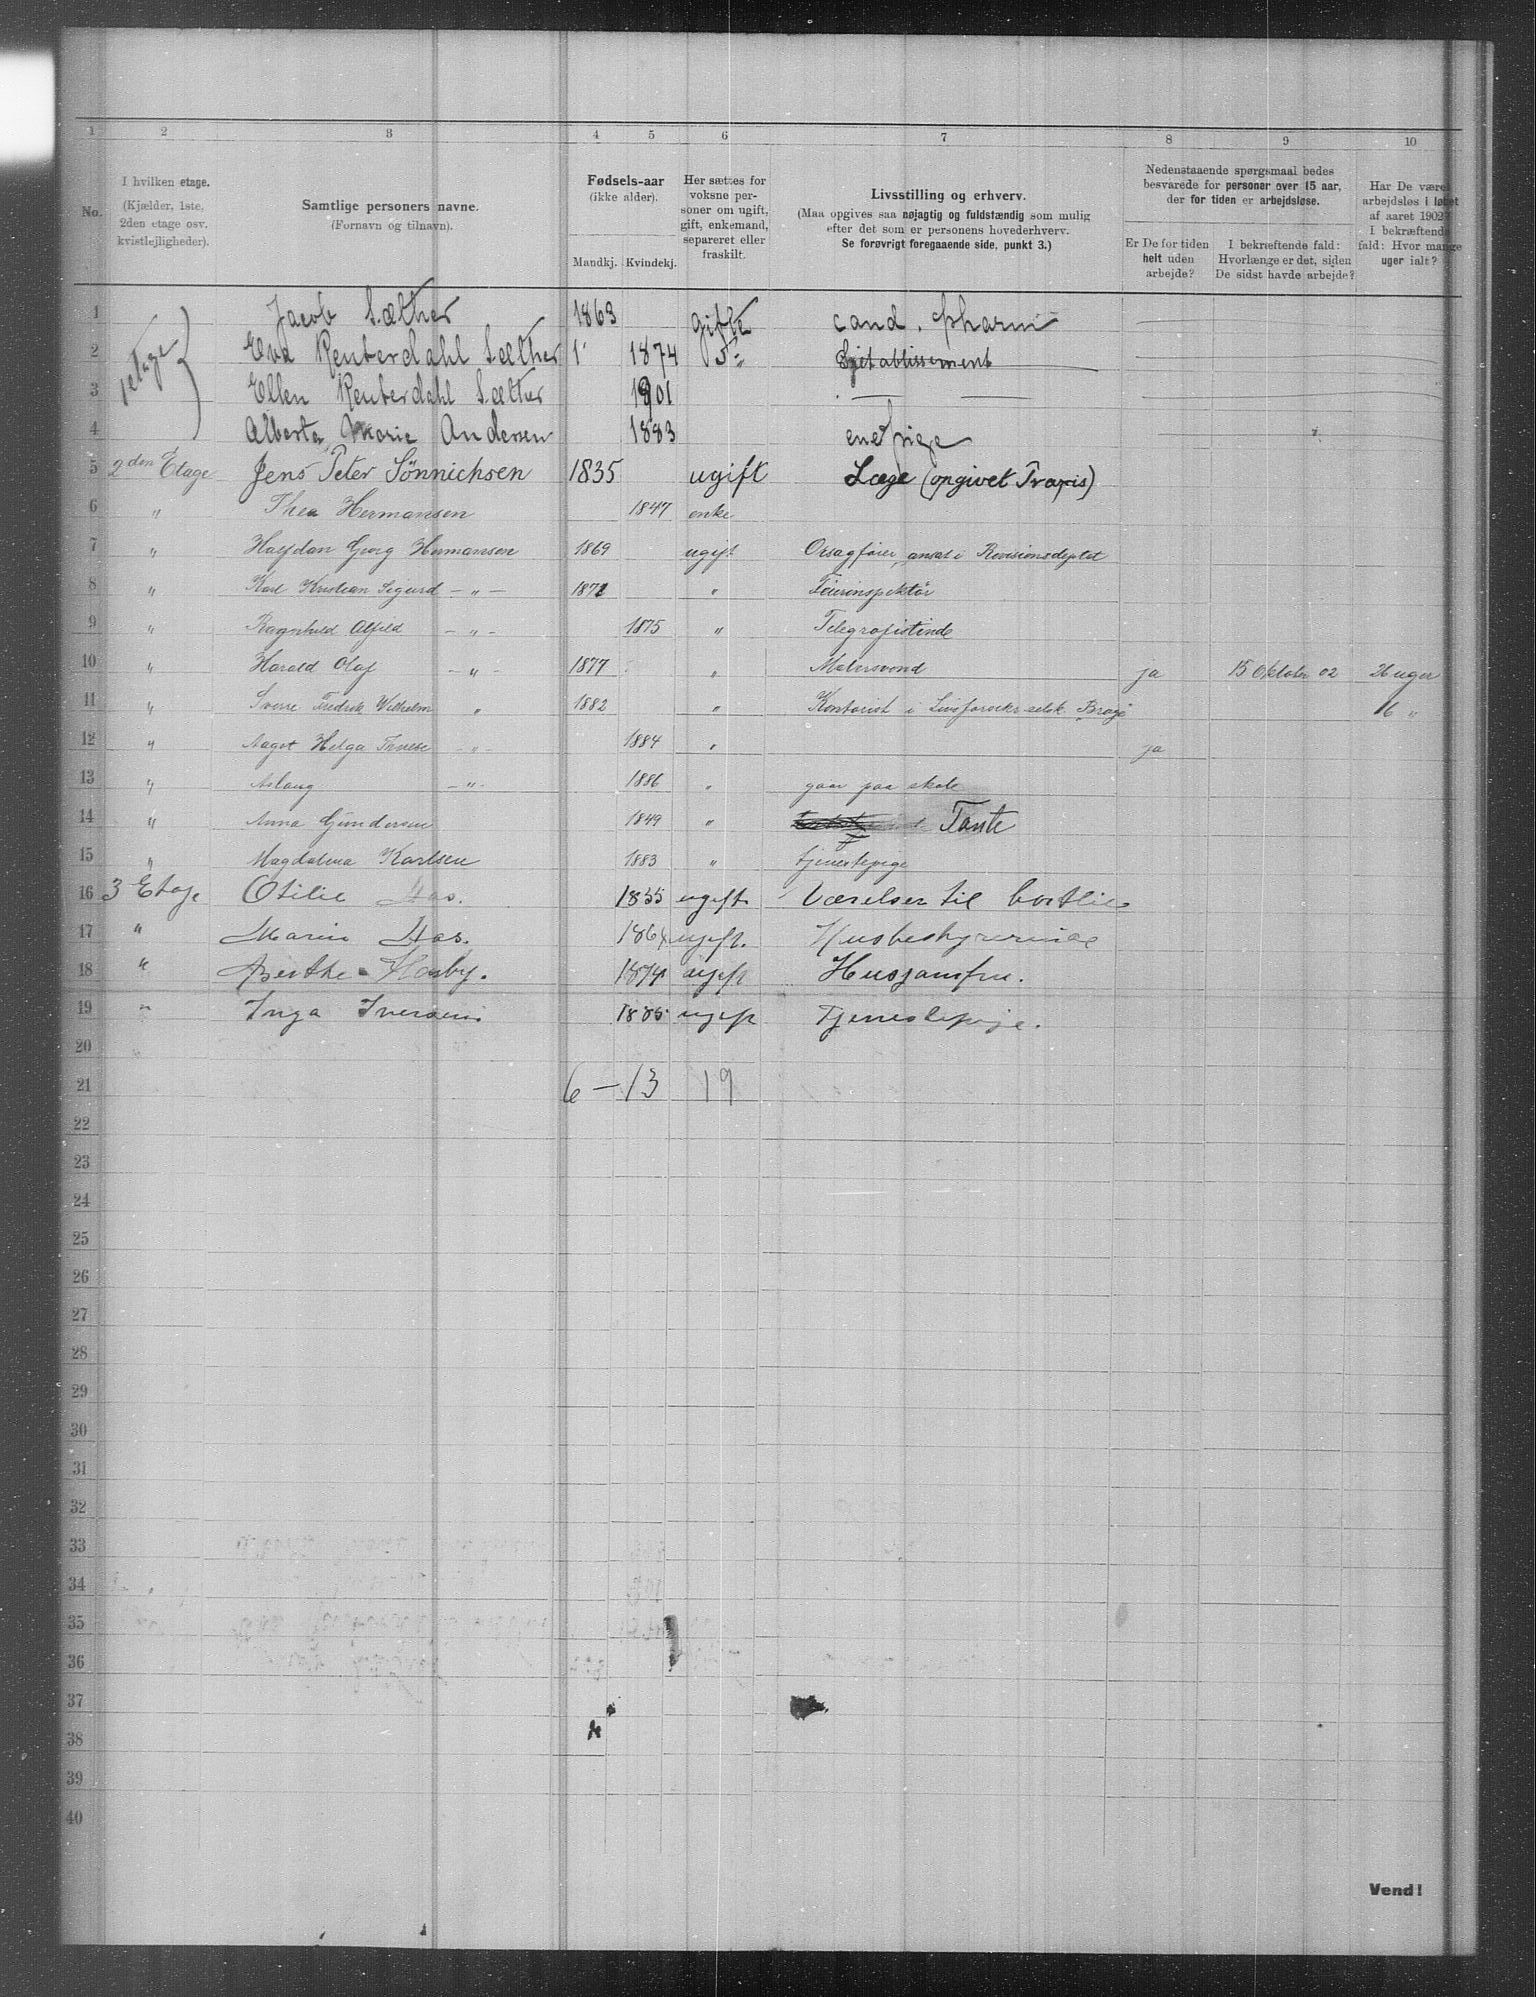 1 2 3 4 5 6 7 8 9 10
No.
I hvilken etage.
(Kjælder, 1ste,
2den etage osv.
kvistlejligheder).
Samtlige personers navne.
(Fornavn og tilnavn).
Fødsels-aar
(ikke alder).
Mandkj. Kvindekj.
Her sættes for
voksne per-
soner om ugift,
gift, enkemand,
separeret eller
fraskilt.
Livsstilling og erhverv.
(Maa opgives saa nøjagtig og fuldstændig som mulig
efter det som er personens hovederhverv.
Se forøvrigt foregaaende side, punkt 3.)
Nedenstaaende spørgsmaal bedes
besvarede for personer over 15 aar,
der for tiden er arbejdsløse.
Er De for tiden
helt uden
arbejde?
I bekræftende fald:
Hvorlænge er det, siden
De sidst havde arbejde?
Har De været
arbejdsløs i løbet
af aaret 1902?
I bekræftende
fald: Hvor mange
uger ialt?
1 1 etage Jacob Sæther 1863 gifte cand. pharm
2 Eva Renterdahl Sæther 1874
3 Ellen Renterdahl Sæther 1901
4 Alberta Marie Andersen 1883 enepige
5 2den Etage Jens Peter Sönnichsen 1835 ugift Læge (opgivet Praxis)
6 " Thea Hermansen 1847 enke
7 " Halfdan Georg Hermansen 1869 ugift Orsagfører, ansat i Revisionsdeptet
8 " Karl Kristian Sigurd -"- 1871 "
9 " Ragnhild Alfild -"- 1875 " Telegrafistinde
10 " Harald Olaf -"- 1877 " Malersvend ja 15 Oktober 02 26 uger
11 " Sverre Fredrik Wilhelm " 1882 " Kontorist i Livsforsikr selsk. Brage 6 "
12 " Aagot Helga -"- 1884 " ja
13 " Aslaug -"- 1886 " gaar paa skole
14 " Anna Gundersen 1849 " Tante
15 " Magdalena Karlsen 1883 " tjenestepige
16 3 Etage Otilie Aas. 1835 ugift Værelser til bortleie
17 " Marie Aas. ugift. Husbestyrerinde
18 " Berthe Hosby. 1874 ugift Husjomfru.
19 " Inga Iversen 1885 ugift Tjenestepige.
20
21 6 – 13 19
22
23
24
25
26
27
28
29
30
31
32
33
34
35
36
37
38
39
40
Vend!